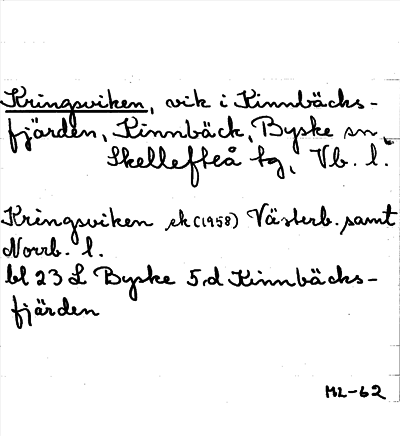 Kringsviken, vik i Kinnbäcks-
fjärden, Kinnbäck, Byske sn,
Skellefteå tg, Vb. l.
Kringsviken ek (1958) Västerb. samt
Norrb. l.
bl 23 L Byske 5 d Kinnbäcks-
fjärden
ML-62